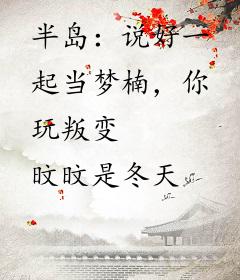 半岛：说好一
起当梦楠，你
玩叛变
旼旼是冬天